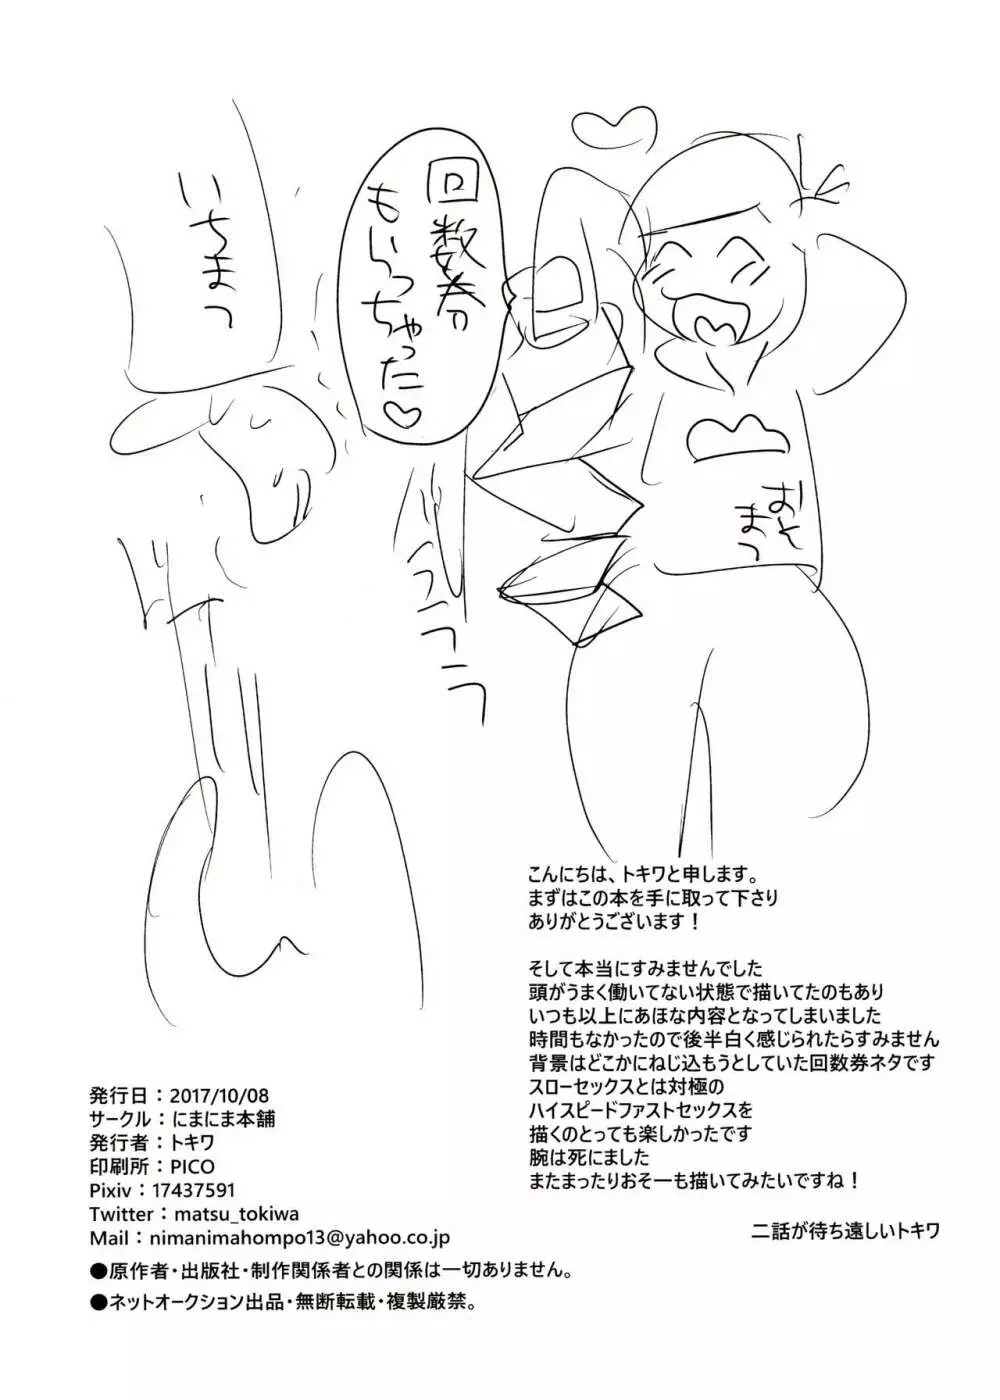 回数券
もらっちゃった♡
いちまつ
おそ
まつ
こんにちは、トキワと申します。
まずはこの本を手に取って下さり
ありがとうございます！
そして本当にすみませんでした
頭がうまく働いてない状態で描いてたのもあり
いつも以上にあほな内容となってしまいました
時間もなかったので後半白く感じられたらすみません
背景はどこかにねじ込もうとしていた回数券ネタです
スローセックスとは対極の
ハイスピードファストセックスを
描くのとっても楽しかったです
腕は死にました
またまったりおそ一も描いてみたいですね！
二話が待ち遠しいトキワ
発行日：2017/10/08
サークル：にまにま本舗
発行者：トキワ
印刷所：PICO
Pixiv：17437591
Twitter：matsu_tokiwa
Mail：nimanimahompo13@yahoo.co.jp
●原作者・出版社・制作関係者との関係は一切ありません。
●ネットオークション出品・無断転載・複製厳禁。